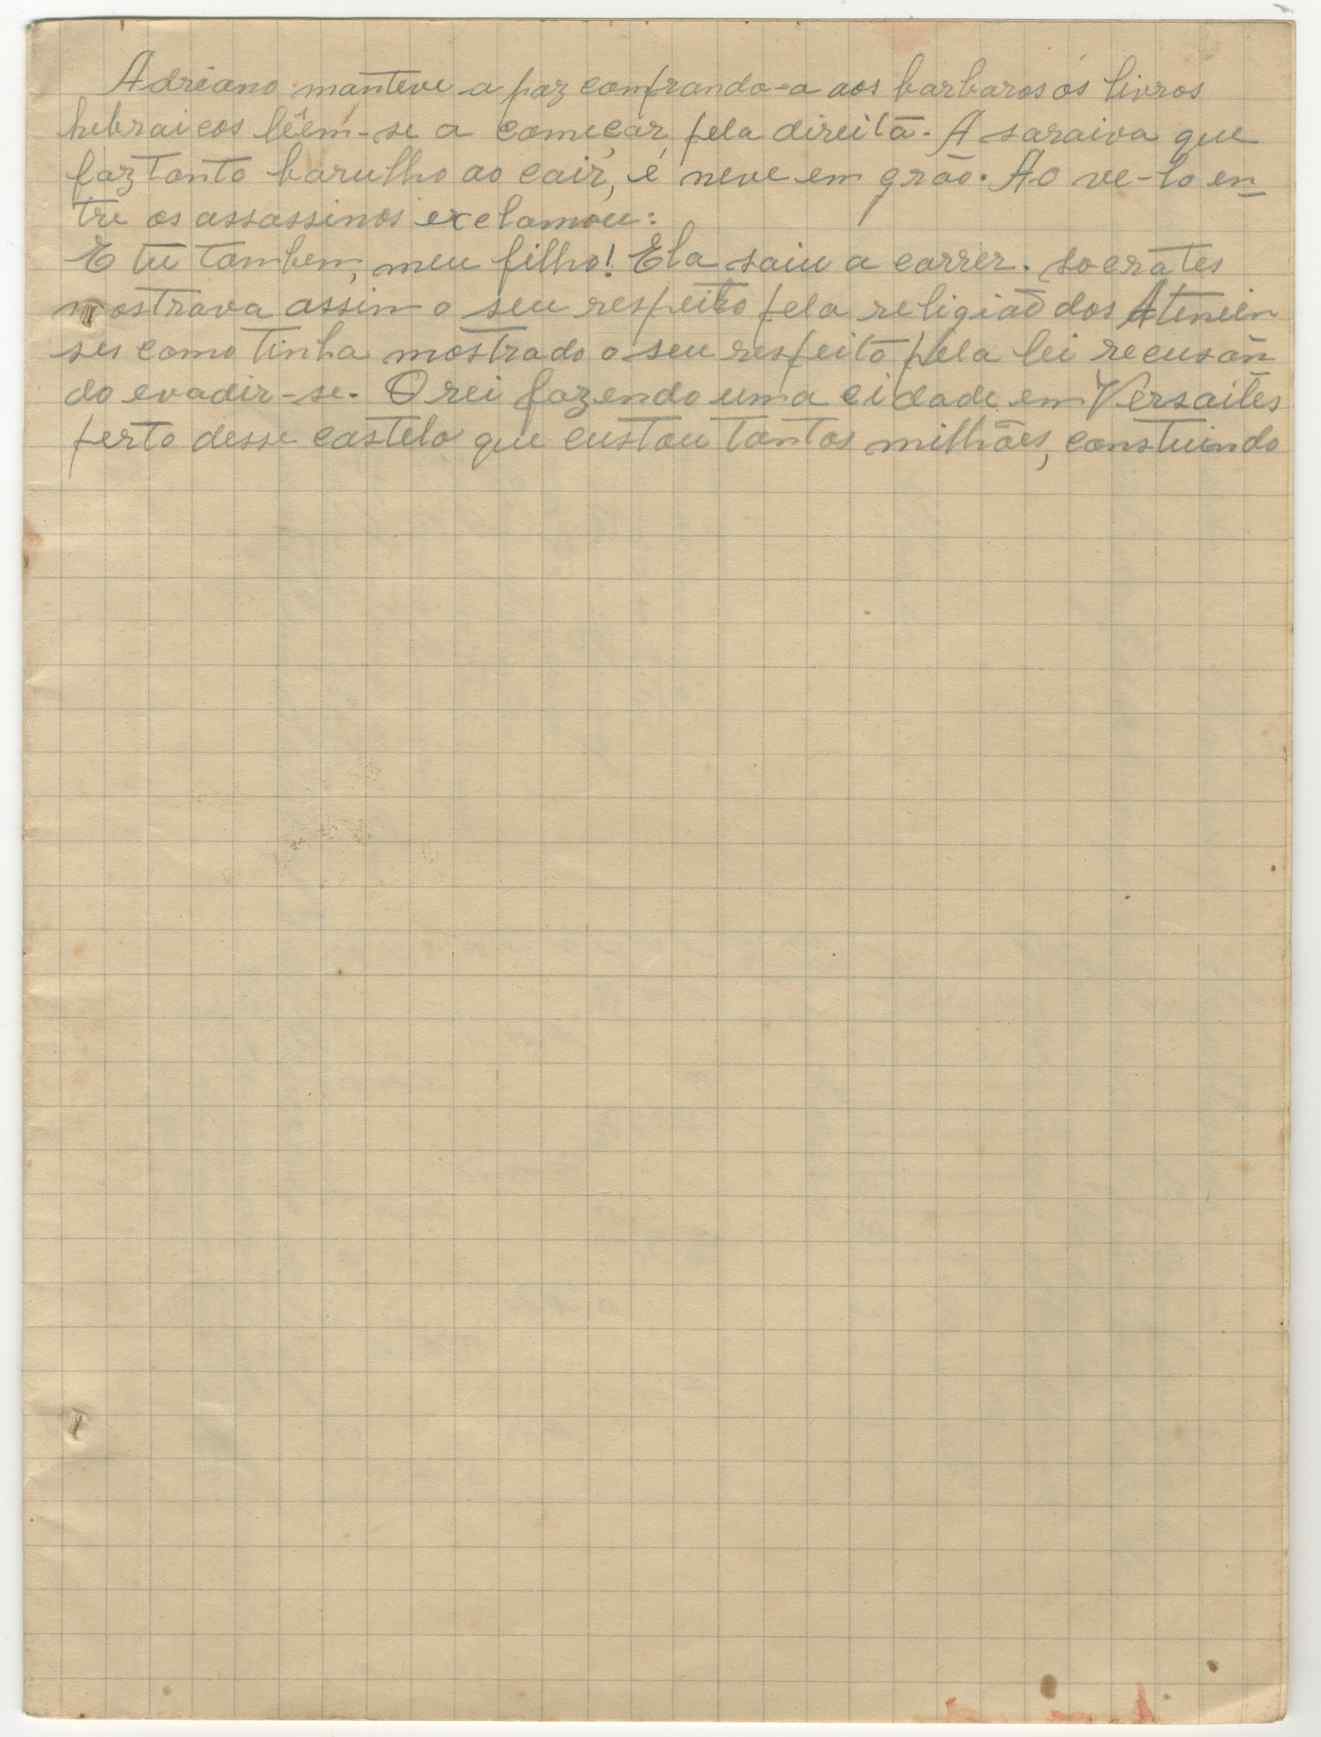 Adriano manteve a paz comprando-a aos barbaros os livros
hebraicos lêem-se a começar, pela direita. A saraiva que
faz tanto barulho ao cair, é neve em grão. Ao ve-lo en
tre os assassinos exclamou:
E tu tambem, meu filho! Ela saiu a correr. Socrates
mostrava assim o seu respeito pela religião dos Atenien
ses como tinha mostrado o seu respeito pela lei recusan
do evadir-se. O rei fazendo uma cidade em Versailes
perto desse castelo que custou tantos milhões, constuindo